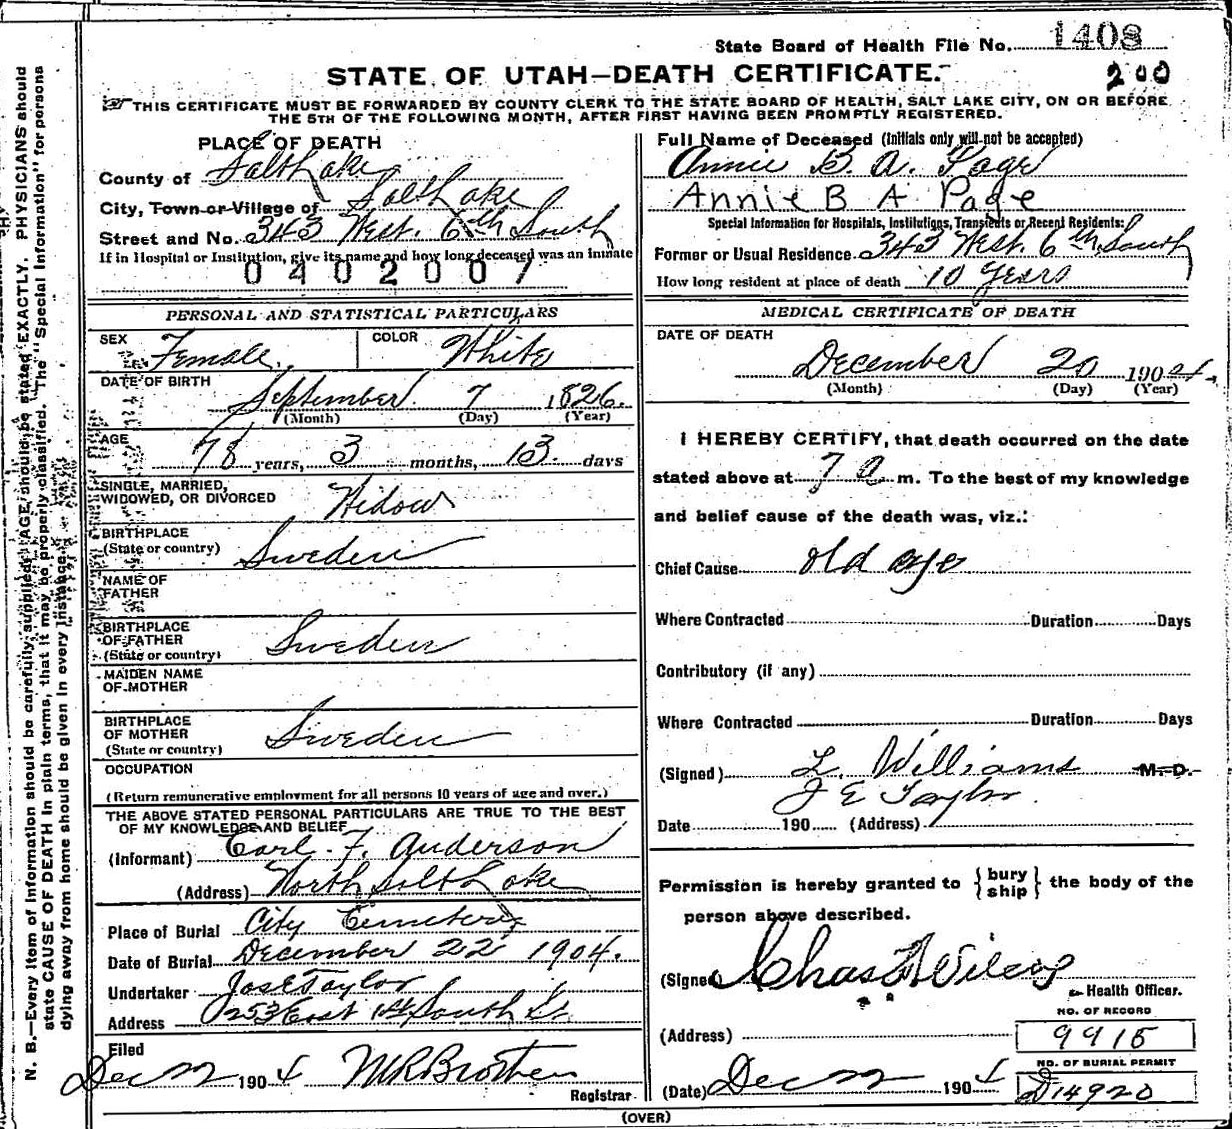 State Board of Health File No. 1408
STATE OF UTAH—DEATH CERTIFICATE.
200
THIS CERTIFICATE MUST BE FORWARDED BY COUNTY CLERK TO THE STATE BOARD OF HEALTH, SALT LAKE CITY, ON OR BEFORE
THE 5TH OF THE FOLLOWING MONTH, AFTER FIRST HAVING BEEN PROMPTLY REGISTERED.
N. B.—Every item of information should be carefully supplied. AGE should be stated EXACTLY. PHYSICIANS should
state CAUSE OF DEATH in plain terms, that it may be properly classified. The "Special Information" for persons
dying away from home should be given in every instance.
PLACE OF DEATH
County of Salt Lake
City, Town or Village of Salt Lake
Street and No. 343 West. 6th South
If in Hospital or Institution, give its name and how long deceased was an inmate
0402007
PERSONAL AND STATISTICAL PARTICULARS
SEX Female. COLOR White
DATE OF BIRTH September 7 1826.
(Month) (Day) (Year)
AGE 78 years, 3 months, 13 days
SINGLE, MARRIED,
WIDOWED, OR DIVORCED Widow
BIRTHPLACE
(State or country) Sweden
NAME OF
FATHER
BIRTHPLACE
OF FATHER
(State or country) Sweden
MAIDEN NAME
OF MOTHER
BIRTHPLACE
OF MOTHER
(State or country) Sweden
OCCUPATION
(Return remunerative employment for all persons 10 years of age and over.)
THE ABOVE STATED PERSONAL PARTICULARS ARE TRUE TO THE BEST
OF MY KNOWLEDGE AND BELIEF
(Informant) Carl. F. Anderson
(Address) North Salt Lake
Place of Burial City Cemetery
Date of Burial December 22 1904.
Undertaker Jos E Taylor
Address 253 East 1st South St
Filed
Dec 22 1904
Registrar
Full Name of Deceased (Initials only will not be accepted)
Annie B. A. Page
Annie B A Page
Special Information for Hospitals, Institutions, Transients or Recent Residents:
Former or Usual Residence 343 West. 6th South
How long resident at place of death 10 Years
MEDICAL CERTIFICATE OF DEATH
DATE OF DEATH
December 20 1904.
(Month) (Day) (Year)
I HEREBY CERTIFY, that death occurred on the date
stated above at 7 a m. To the best of my knowledge
and belief cause of the death was, viz.:
Chief Cause old age
Where Contracted Duration Days
Contributory (if any)
Where Contracted Duration Days
(Signed) L. Williams M. D.
J E Taylor
Date 190 (Address)
Permission is hereby granted to { bury ship } the body of the
person above described.
(Signed) Chas
Health Officer.
NO. OF RECORD
(Address) 9915
NO. OF BURIAL PERMIT
(Date) Dec 22 1904 D14920
(OVER)